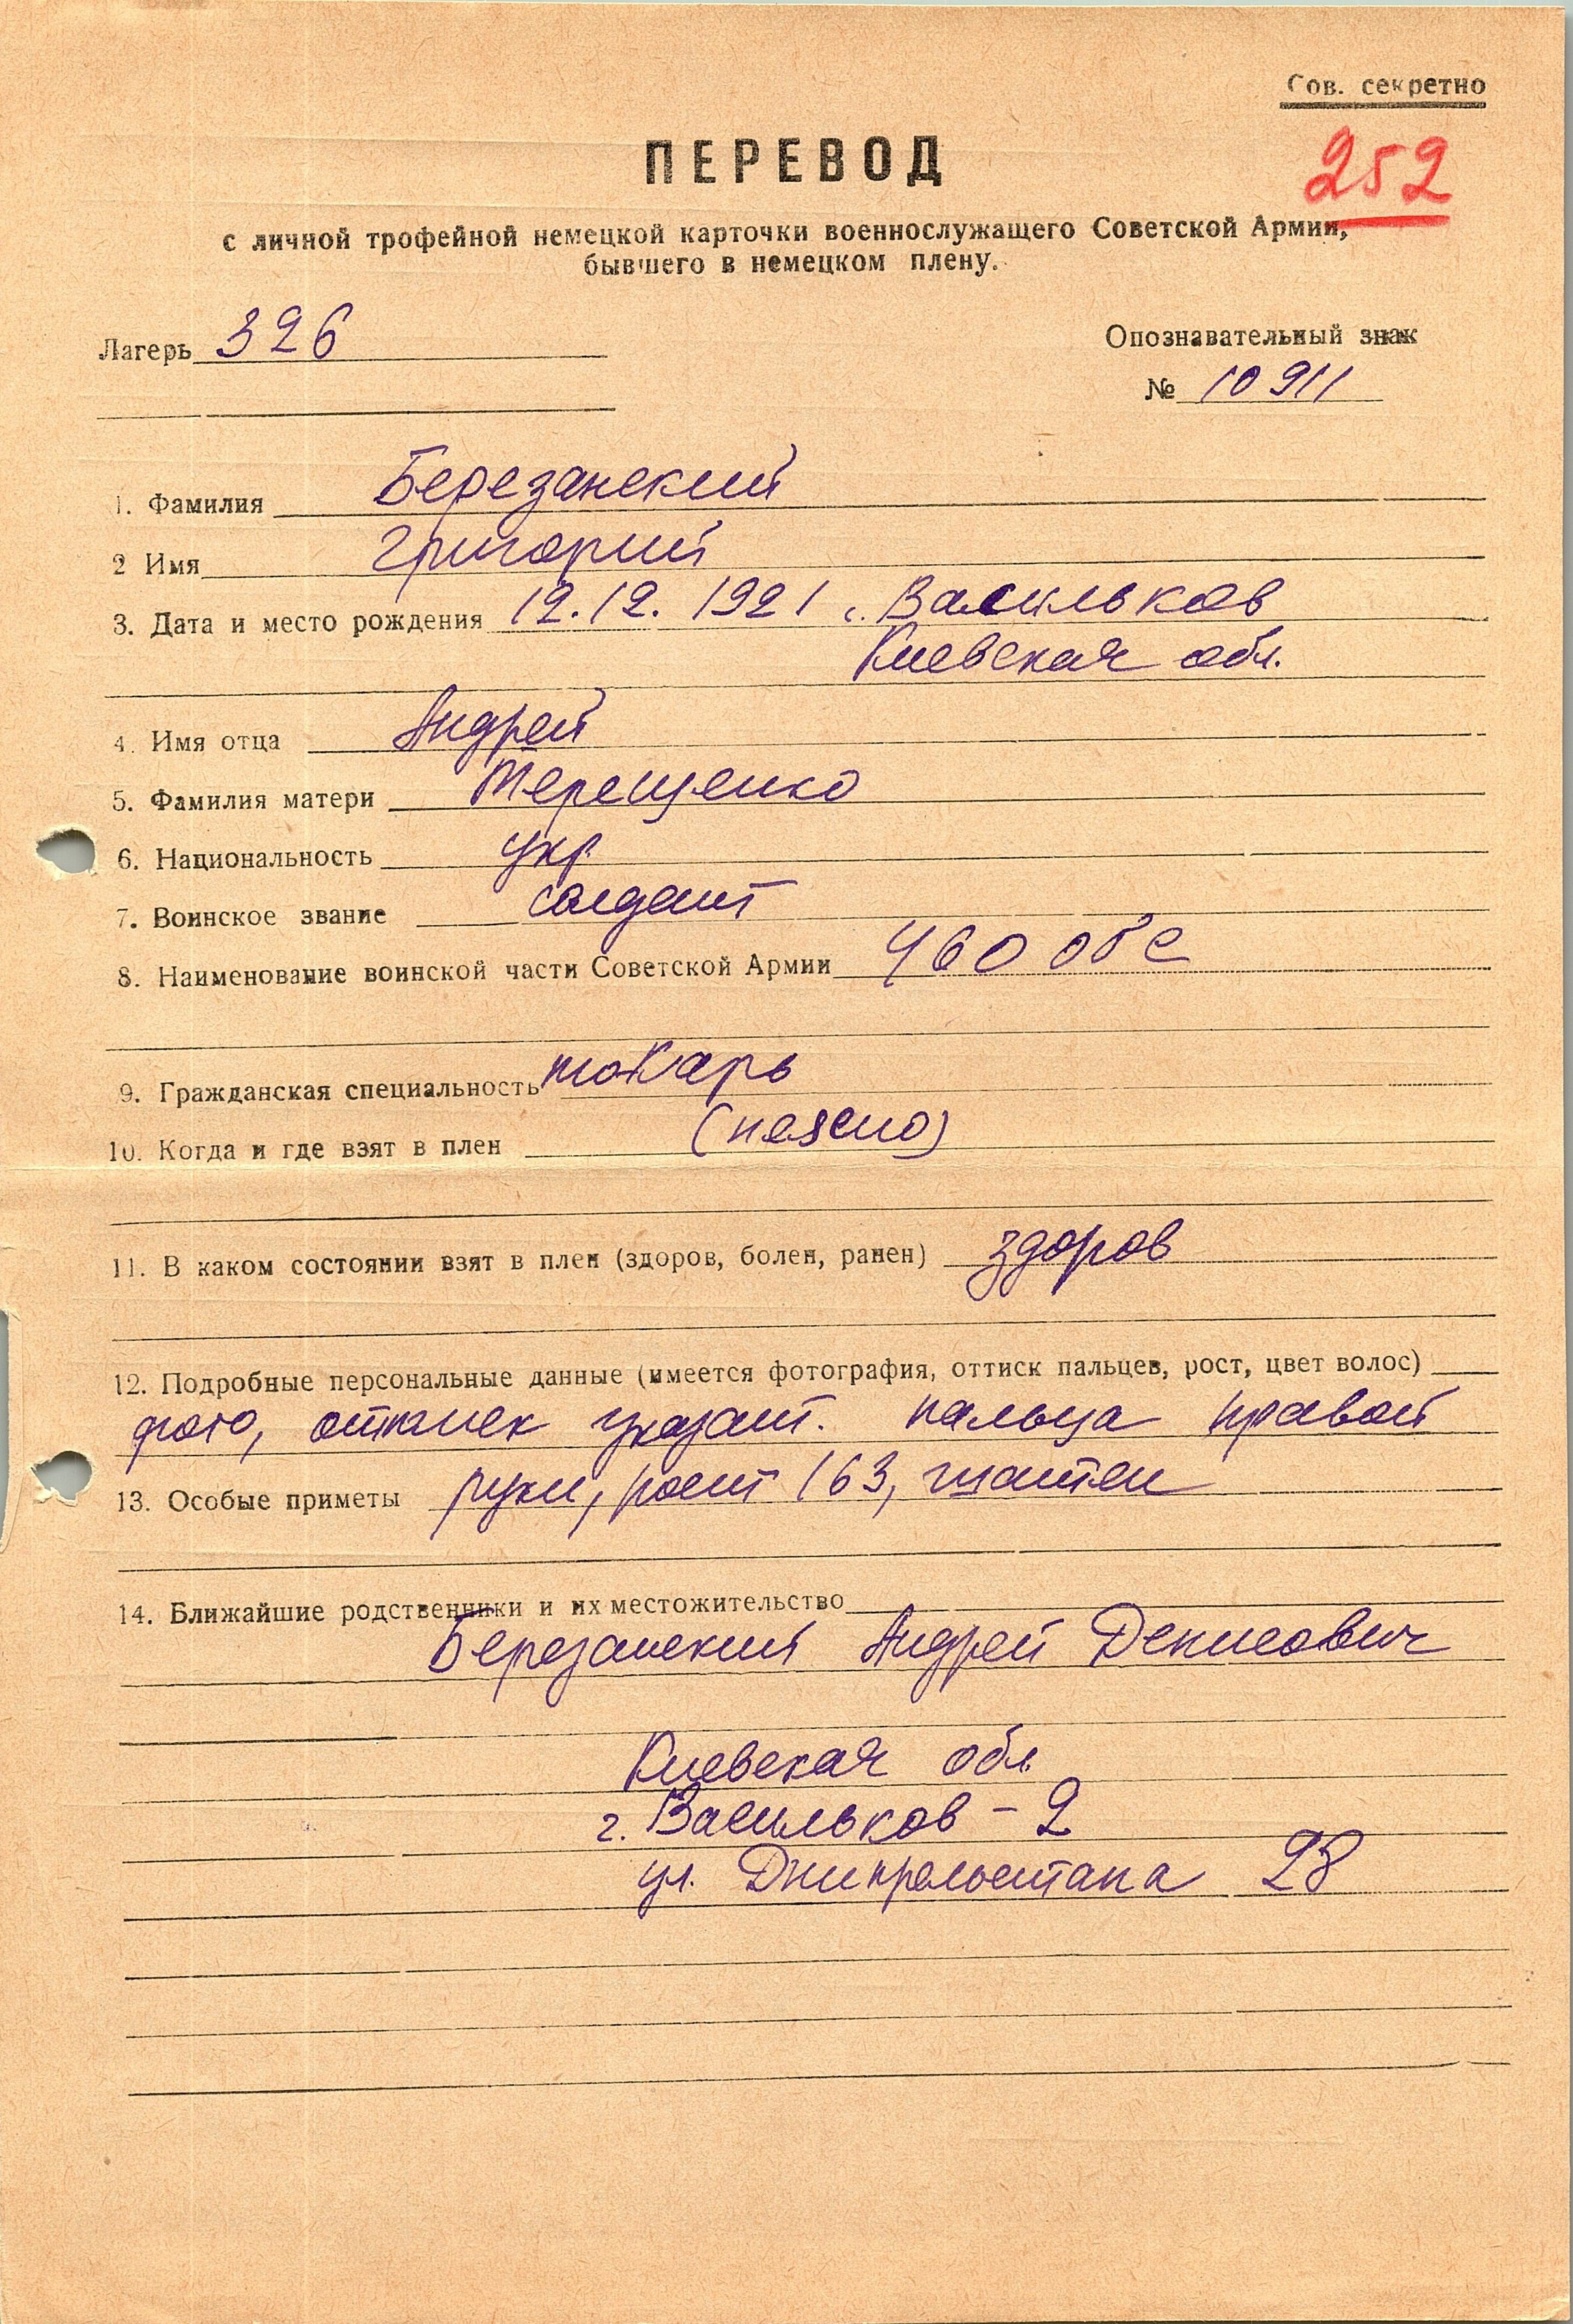 Сов. секретно
252
ПЕРЕВОД
с личной трофейной немецкой карточки военнослужащего Советской Армии,
бывшего в немецком плену.
Лагерь 326
Опознавательный знак
№ 10911
1. Фамилия Березанский
2 Имя Григорий
3. Дата и место рождения 12.12.1921 г. Васильков
Киевская обл.
4. Имя отца Андрей
5. Фамилия матери Терещенко
6. Национальность укр
7. Воинское звание солдат
8. Наименование воинской части Советской Армии 460 обс
9. Гражданская специальность токарь
10. Когда и где взят в плен (неясно)
11. В каком состоянии взят в плен (здоров, болен, ранен) здоров
12. Подробные персональные данные (имеется фотография, оттиск пальцев, рост, цвет волос)
фото, оттиск указат. пальца правой
13. Особые приметы руки, рост 163, шатен
14. Ближайшие родственники и их местожительство
Березанский Андрей Денисович
Киевская обл
г. Васильков - 2
ул. 28